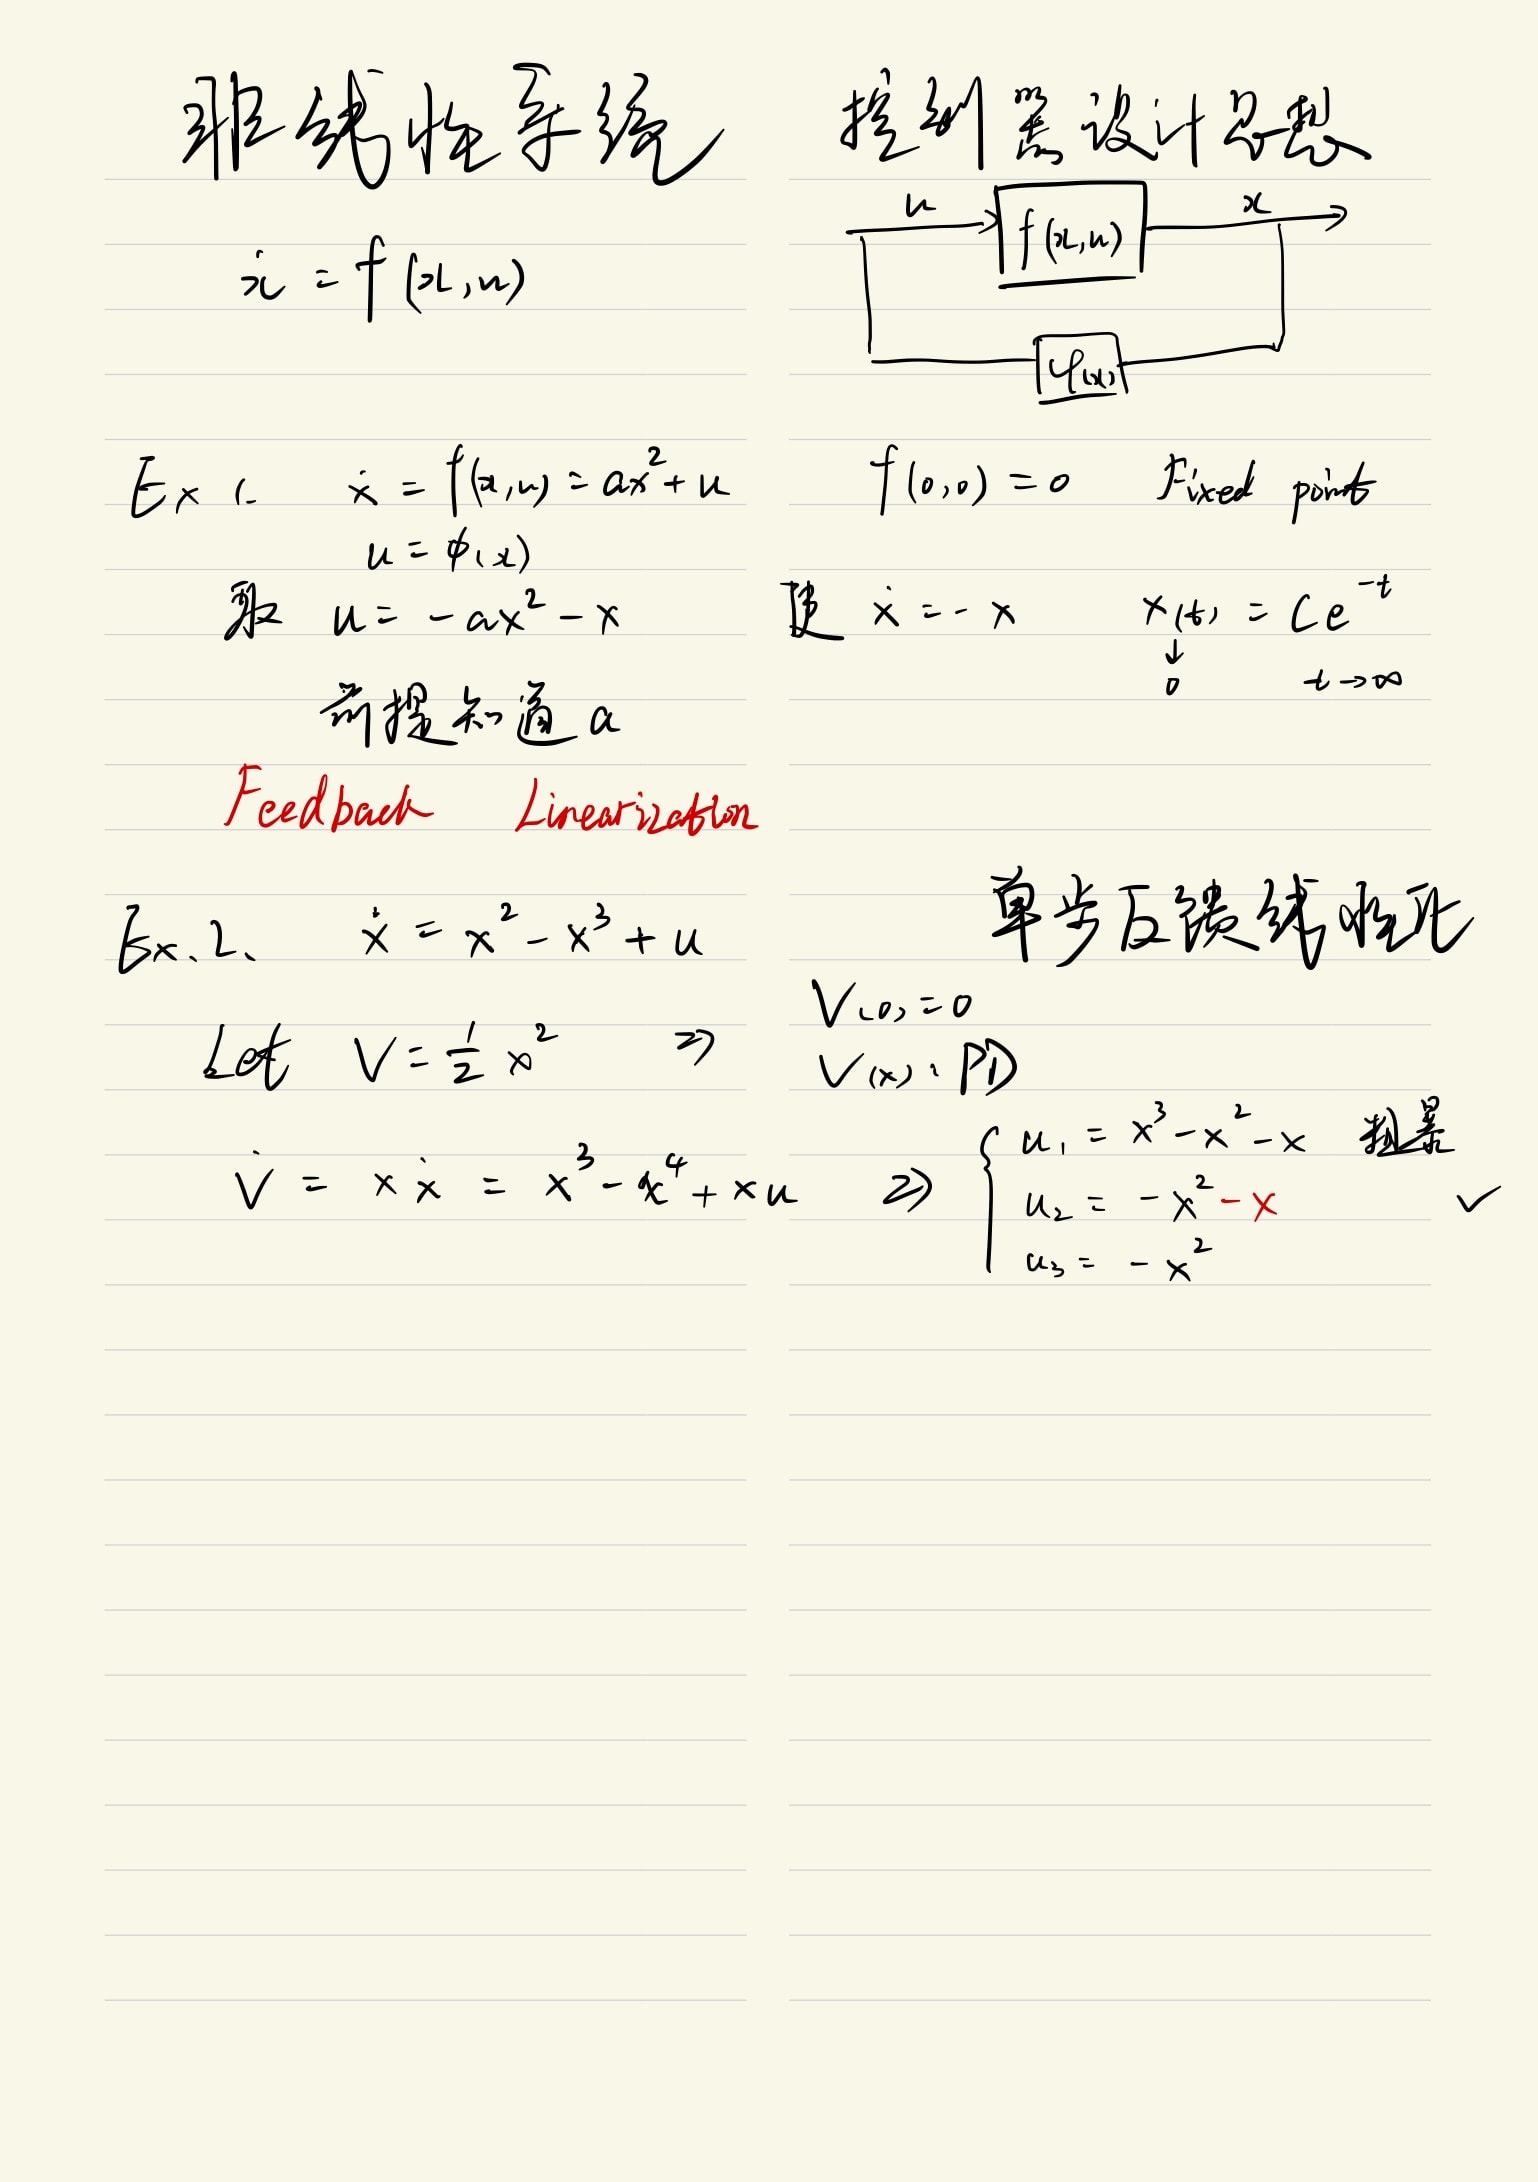 非线性系统 控制器设计思想
ẋ = f(x,u)
u f(x,u) x
φ(x)
Ex 1. ẋ = f(x,u) = ax² + u f(0,0) = 0 Fixed point
u = φ(x)
取 u = -ax² - x 使 ẋ = -x x(t) = Ce⁻ᵗ
↓
0 t→∞
前提知道a
Feedback Linearization
单步反馈线性化
Ex. 2. ẋ = x² - x³ + u
V(0) = 0
Let V = ½ x² ⇒ V(x): PD
V̇ = xẋ = x³ - x⁴ + xu ⇒ { u₁ = x³ - x² - x 粗暴
u₂ = -x² - x ✓
u₃ = -x²